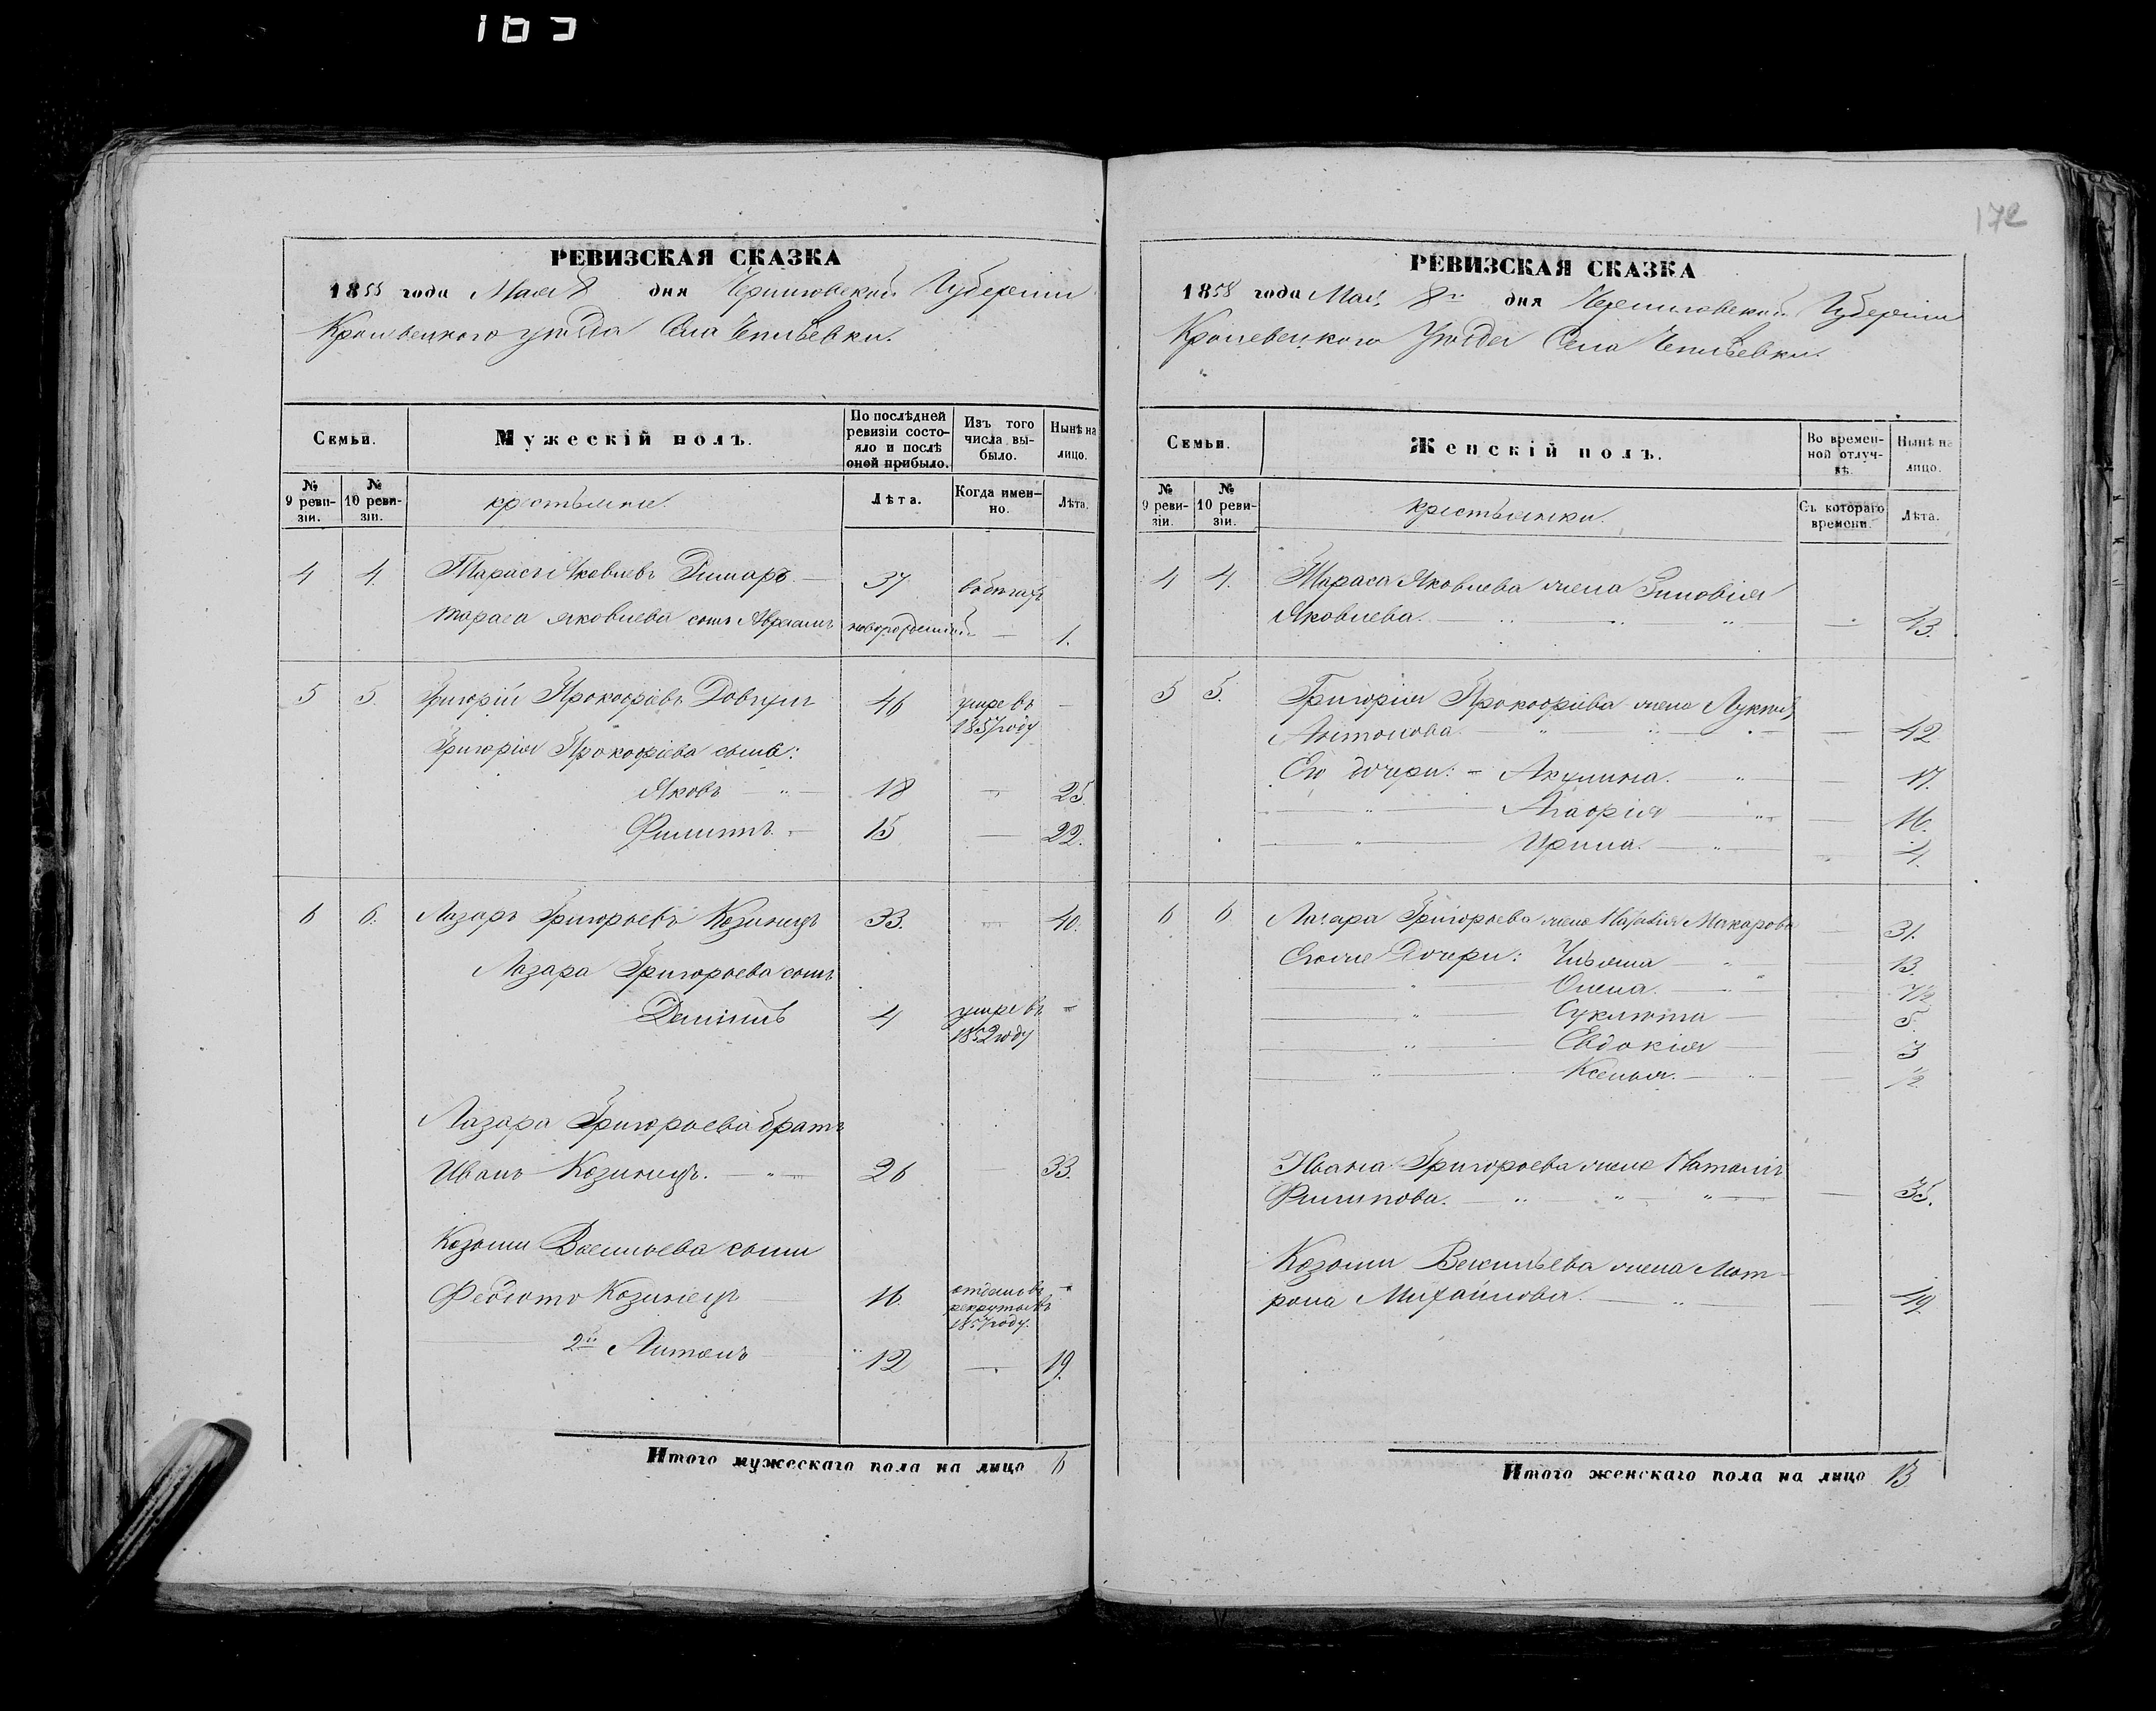 172
РЕВИЗСКАЯ СКАЗКА
1858 года Мая 8 дня Черниговской Губернии
Кролевецкого уѣзда Села Чепліевки.
Семьи.
Мужескій полъ.
По послѣдней ревизіи состояло и послѣ оной прибыло.
Изъ того числа выбыло.
Нынѣ на лицо.
№ 9 ревизіи.
№ 10 ревизіи.
крестьяне.
Лѣта.
Когда именно.
Лѣта.
4 4. Тарасъ Яковлевъ — 37 в бѣгахъ
Тараса Яковлева сынъ Авраамъ новорожденный — 1.
5 5. Григорій Прокофіевъ Довгуля 46 умре въ 1857 году —
Григорія Прокофіева сыны:
Яковъ — 18 — 25.
Филипъ. 15 — 22.
6 6. Лазарь Григорьевъ Козинецъ 33. — 40.
Лазара Григорьева сынъ
4 умре въ 1852 году —
Лазара Григорьева братъ
Иванъ Козинецъ. — 26 — 33.
Козьмы Васильева сыны
Федото Козинецъ 16. отданъ въ рекруты въ 1857 году. —
2й Антонъ 12 — 19.
Итого мужескаго пола на лицо 6
РЕВИЗСКАЯ СКАЗКА
1858 года Мая 8го дня Черниговской Губерніи
Кролевецкого Уѣзда Села Чепліевки.
Семьи.
Женскій полъ.
Во временной отлучкѣ.
Нынѣ на лицо.
№ 9 ревизіи.
№ 10 ревизіи.
крестьянки.
Съ котораго времени.
Лѣта.
4 4. Тараса Яковлева жена Зиновія
Яковлева. — 43.
5 5. Григорія Прокофіева жена
Антонова. — 42
Его дочери: — Акулина. — 17.
Агафія — 16.
Ирина. — 4.
6 6 Лазара Григорьева жена Наталія Макарова — 31.
Егоже дочери: Ульяна — 13.
Олена. —
— 5.
Евдокія — 3
Ксенья. — ½
Ивана Григорьева жена Наталія
Филипова. — 35.
Козьмы Васильева жена Мат-
рона Михайлова. — 49.
Итого женскаго пола на лицо 13